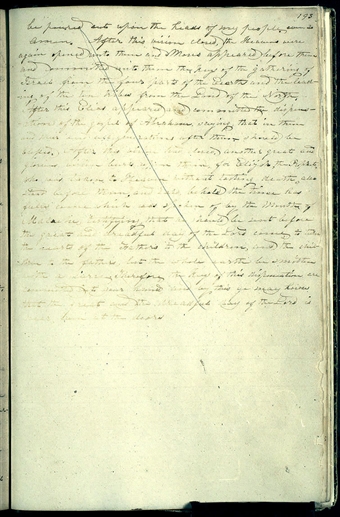 193
be poured out upon the heads of my people, even so
Amen. After this vision closed, the Heavens were
again opened unto them and Moses appeared before them
and committed unto them the keys of the gathering of
Israel from the four parts of the Earth and the lead-
ing of the ten tribes from the Land of the North
After this Elias appeared and committed the dispensa-
tion of the gospel of Abraham, saying, that in them
and their seed all generations after them should be
blessed. After this vision had closed, another great and
glorious vision burst upon them, for Elijah, the Prophet,
who was taken to Heaven without tasting death, also
stood before them, and said, behold the time has
fully come which was spoken of by the Mouth of
Malachi, testifying, that he should be sent before
the great and dreadful day of the Lord come, to turn
the hearts of the Fathers to the children, and the chil-
dren to the fathers, lest the whole earth be smitten
with a curse. Therefore, the Keys of this dispensation are
committed to your hands and by this ye may know
that the great and the dreadful day of the Lord is
near, even at the doors